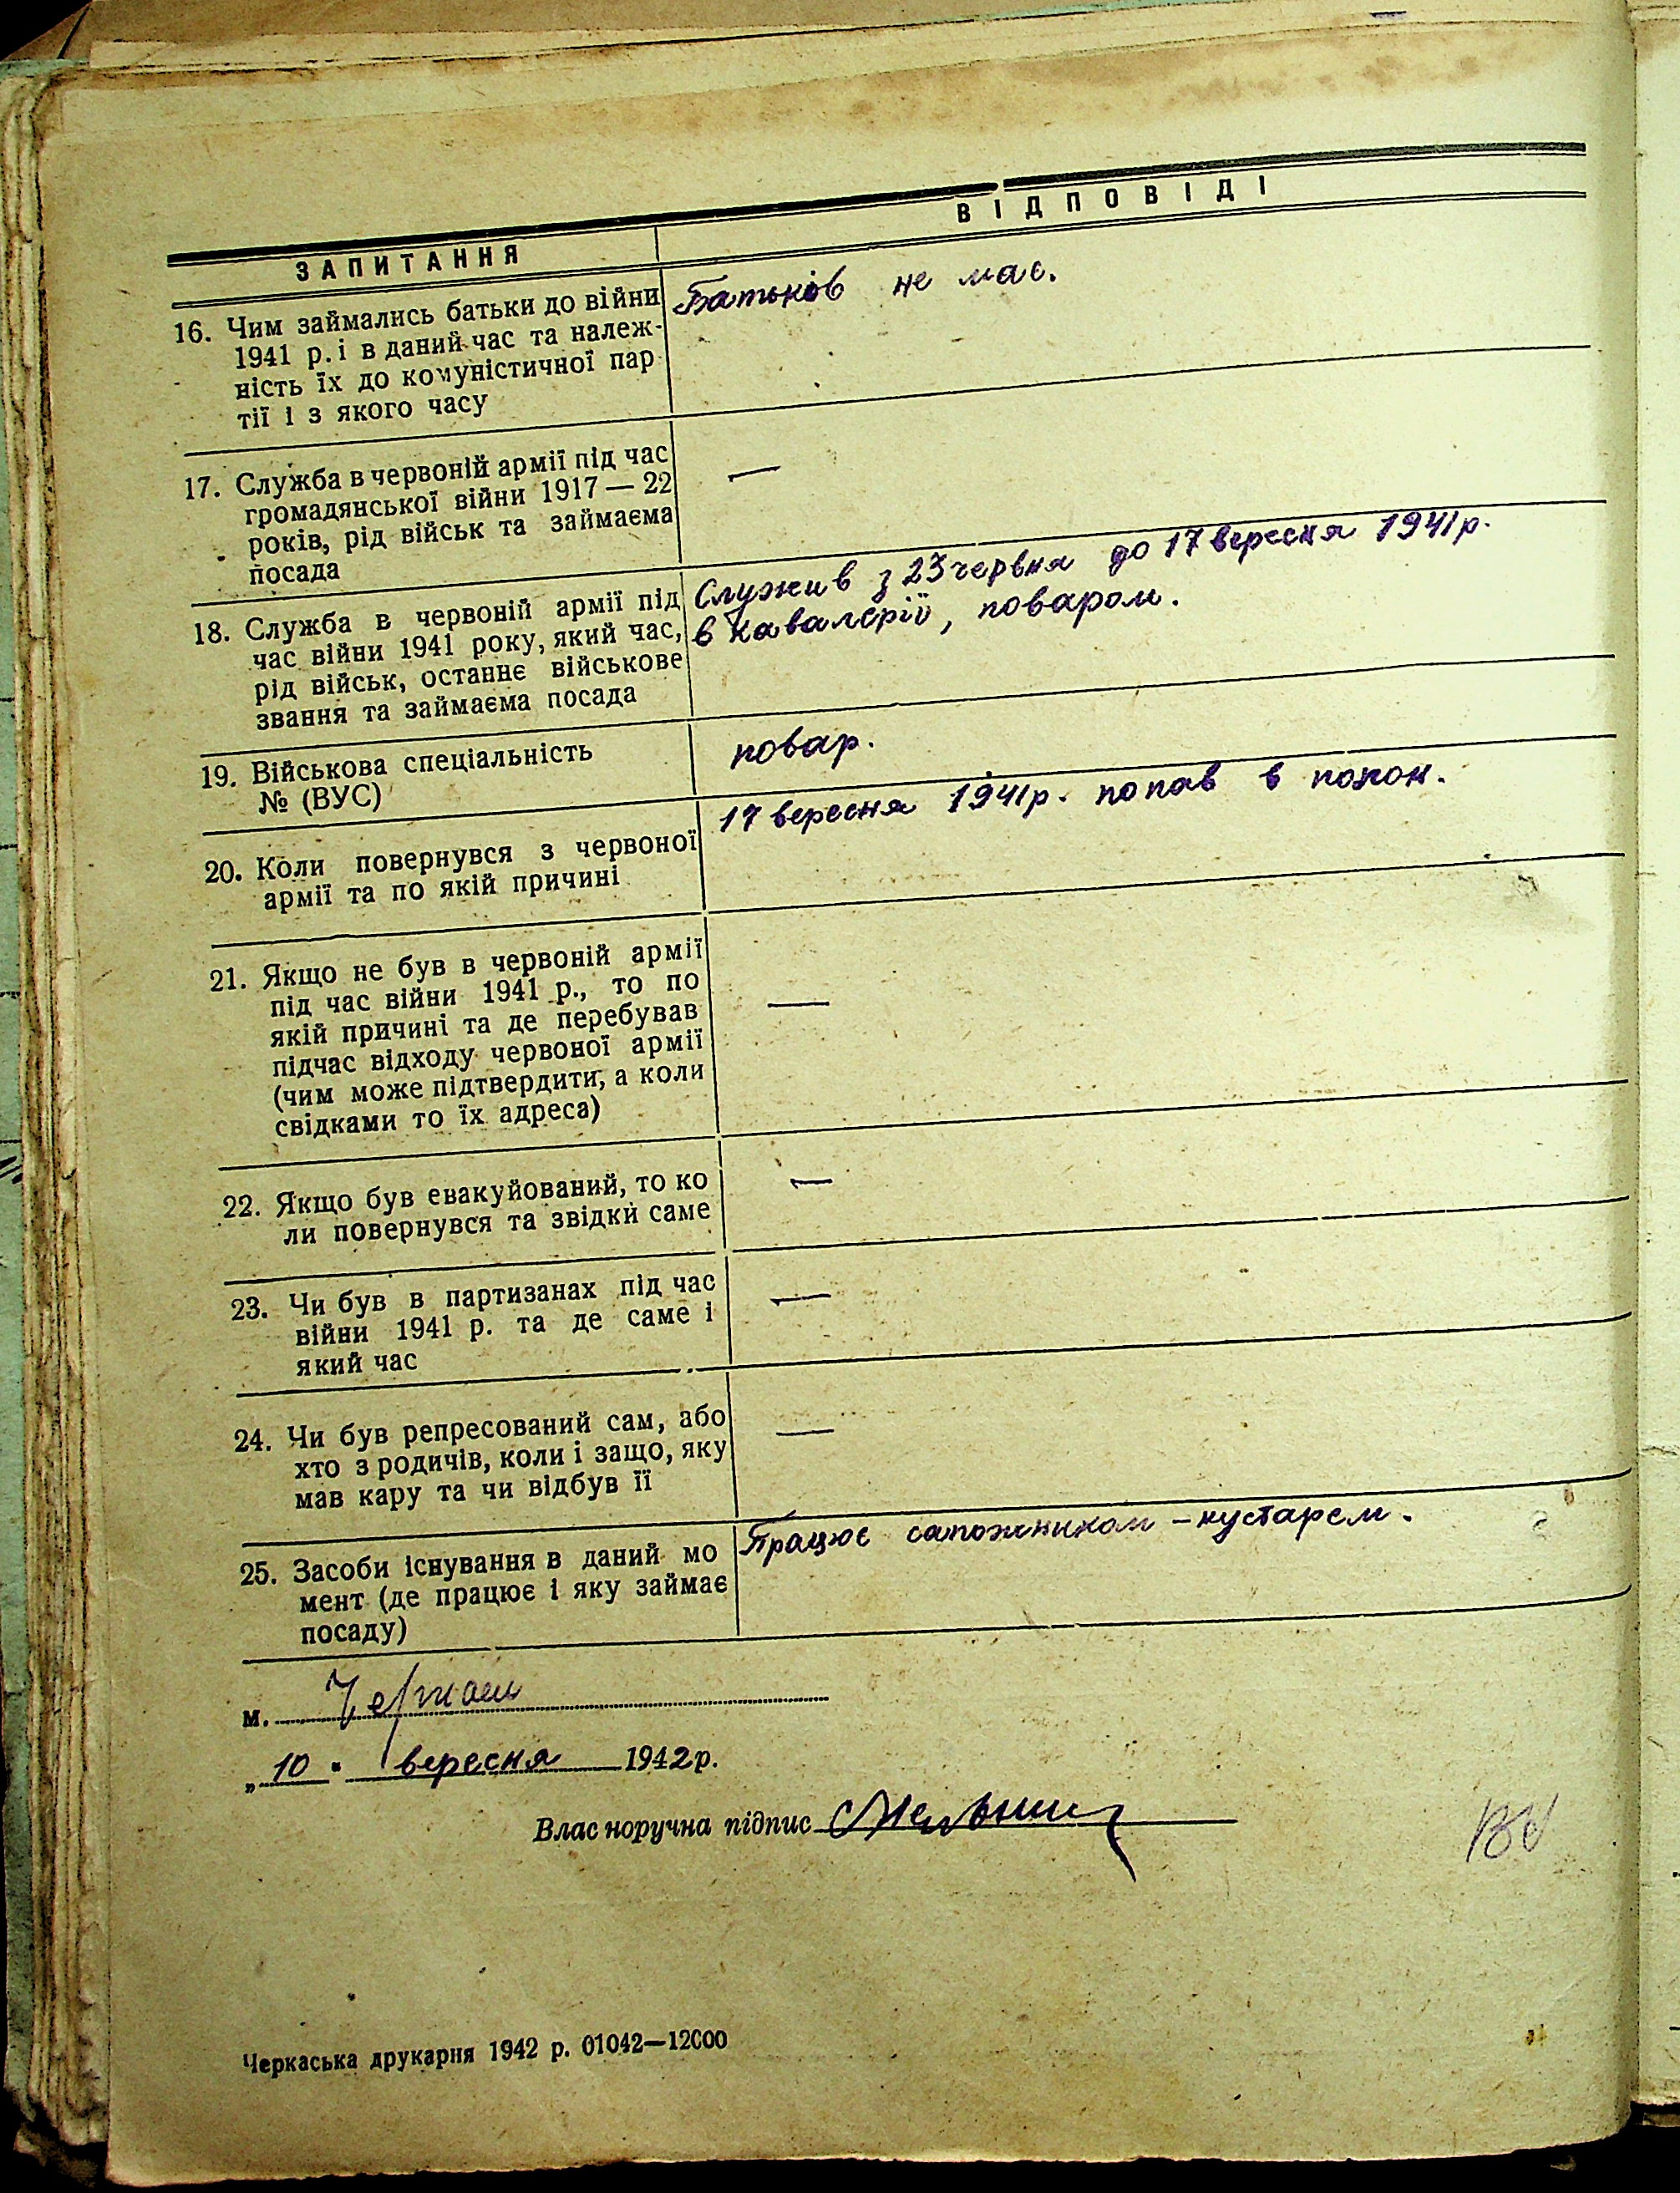 ЗАПИТАННЯ
ВІДПОВІДІ
16. Чим займались батьки до війни
1941 р. і в даний час та належ-
ність їх до комуністичної пар
тії і з якого часу
Батьків не має.
17. Служба в червоній армії під час
громадянської війни 1917 — 22
років, рід військ та займаєма
посада
—
18. Служба в червоній армії під
час війни 1941 року, який час,
рід військ, останнє військове
звання та займаєма посада
Служив з 23 червня до 17 вересня 1941 р.
в кавалерії, поваром.
19. Військова спеціальність
№ (ВУС)
повар.
20. Коли повернувся з червоної
армії та по якій причині
17 вересня 1941 р. попав в полон.
21. Якщо не був в червоній армії
під час війни 1941 р., то по
якій причині та де перебував
підчас відходу червоної армії
(чим може підтвердити, а коли
свідками то їх адреса)
—
22. Якщо був евакуйований, то ко
ли повернувся та звідки саме
—
23. Чи був в партизанах під час
війни 1941 р. та де саме і
який час
—
24. Чи був репресований сам, або
хто з родичів, коли і защо, яку
мав кару та чи відбув її
—
25. Засоби існування в даний мо
мент (де працює і яку займає
посаду)
Працює сапожником - кустарем.
м. Черкаси
„10" вересня 1942 р.
Власноручна підпис Мельник
Черкаська друкарня 1942 р. 01042—12000